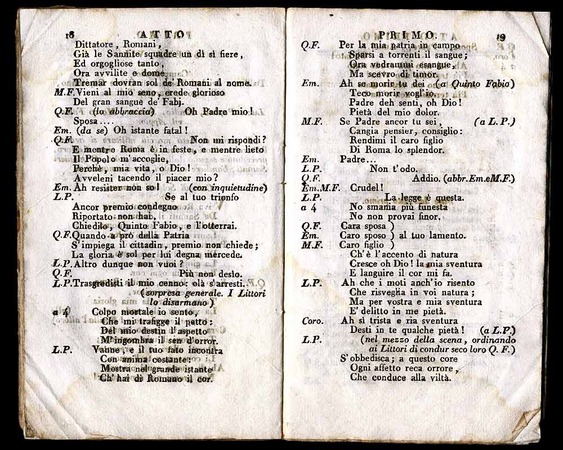 18
ATTO
Dittatore, Romani,
Già le Sannite squadre un dì sì fiere,
Ed orgogliose tanto,
Ora avvilite e dome,
Tremar dovran sol de' Romani al nome.
M.F. Vieni al mio seno, erede glorioso
Del gran sangue de' Fabj.
Q.F. (lo abbraccia) Oh Padre mio!
Sposa....
Em. (da se) Oh istante fatal!
Q.F. Non mi rispondi?
E mentre Roma è in feste, e mentre lieto
Il Popolo m'accoglie,
Perchè, mia vita, o Dio!
Avveleni tacendo il piacer mio?
Em. Ah resister non so! (con inquietudine)
L.P. Se al tuo trionfo
Ancor premio condegno
Riportato non hai,
Chiedilo, Quinto Fabio, e l'otterrai.
Q.F. Quando a prò della Patria
S'impiega il cittadin, premio non chiede;
La gloria è sol per lui degna mercede.
L.P. Altro dunque non vuoi?
Q.F. Più non deslo.
L.P. Trasgredisti il mio cenno: olà s'arresti.
(sorpresa generale. I Littori
lo disarmano)
a 4 Colpo mortale io sento,
Che mi trafigge il petto:
Del mio destin l'aspetto
M'ingombra il sen d'orror.
L.P. Vanne, e il tuo fato incontra
Con anima costante:
Mostra nel grande istante
Ch' hai di Romano il cor.
PRIMO.
19
Q.F. Per la mia patria in campo
Sparsi a torrenti il sangue;
Ora vedrammi esangue,
Ma scevro di timor.
Em. Ah se morir tu dei (a Quinto Fabio)
Teco morir vogl'io.
Padre deh senti, oh Dio!
Pietà del mio dolor.
M.F. Se Padre ancor tu sei, (a L.P.)
Cangia pensier, consiglio:
Rendimi il caro figlio
Di Roma lo splendor.
Em. Padre...
L.P. Non t'odo.
Q.F. Addio. (abbr. Em. e M.F.)
Em. M.F. Crudel!
L.P. La legge è questa.
a 4 No smania più funesta
No non provai finor.
Q.F. Cara sposa )
Em. Caro sposo ) al tuo lamento.
M.F. Caro figlio )
Ch'è l'accento di natura
Cresce oh Dio! la mia sventura
E languire il cor mi fa.
L.P. Ah che i moti anch'io risento
Che risveglia in voi natura;
Ma per vostra e mia sventura
E' delitto in me pietà.
Coro. Ah sì trista e ria sventura
Desti in te qualche pietà! (a L.P.)
L.P. (nel mezzo della scena, ordinando
ai Littori di condur seco loro Q. F.)
S'obbedisca; a questo core
Ogni affetto reca orrore,
Che conduce alla viltà.